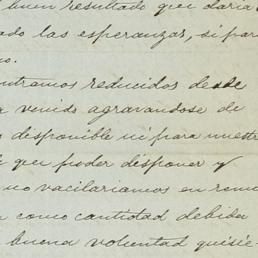 buen resultado que daría
ado las esperanzas, si par
o.
ntramos reducidos desde
a venido agravandose de
disponible ni para nuestr
que poder disponer y
no vacilariamos en remi
como cantidad debida
buena voluntad quisié-